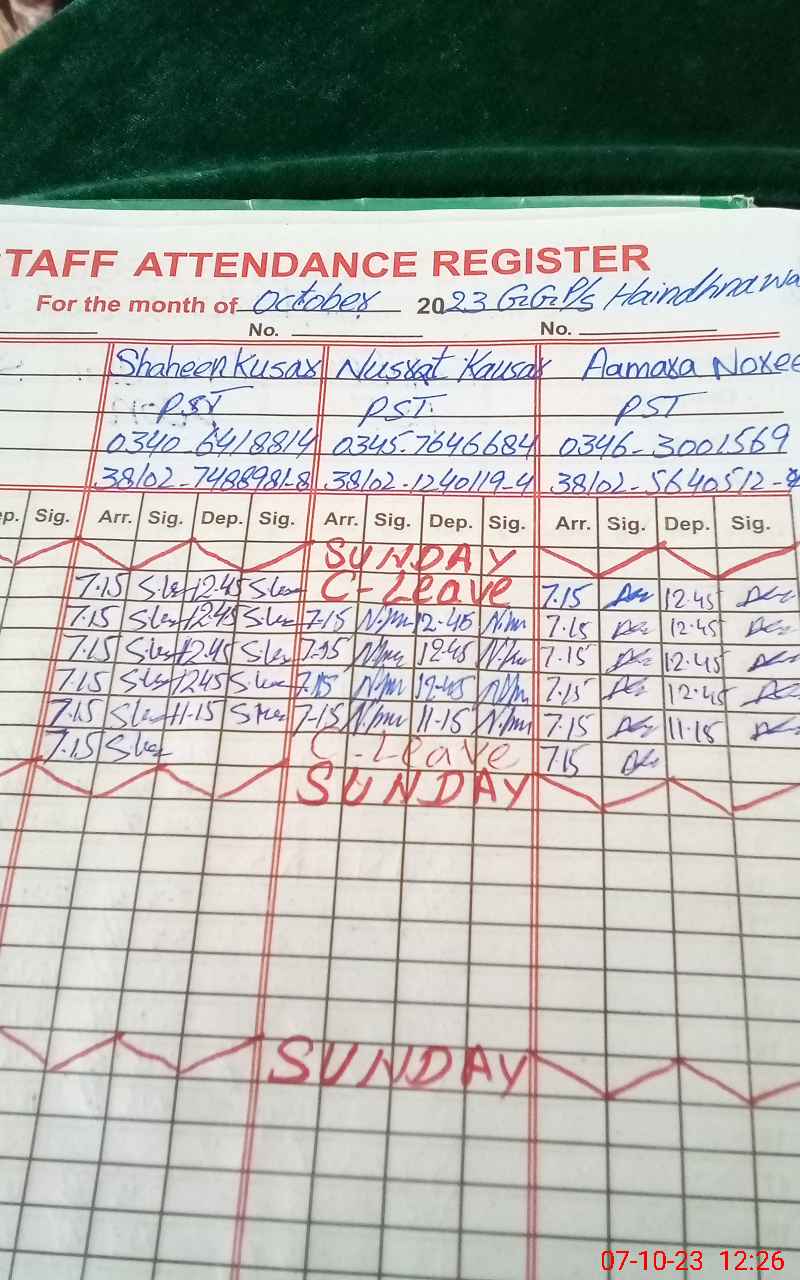 STAFF ATTENDANCE REGISTER
For the month of October 2023 G.G.P/s Haindhnawa
No. No.
Shaheen Kusar Nusrat Kausar Aamara Noree
PST PST PST
0340-6418814 0345-7646684 0346-3001569
38102-7488981-8 38102-1240119-4 38102-5640512-
ep. Sig. Arr. Sig. Dep. Sig. Arr. Sig. Dep. Sig. Arr. Sig. Dep. Sig.
SUNDAY
7.15 12.45 C-Leave 7.15 12.45
7.15 12.45 7-15 N.m 12-45 N.m 7.15 12.45
7.15 12.45 7.15 12.45 7.15 12.45
7.15 1245 7.15 12.45 7.15 12.45
7.15 11.15 7-15 11-15 7.15 11.15
7.15 C-Leave 7.15
SUNDAY
SUNDAY
07-10-23 12:26